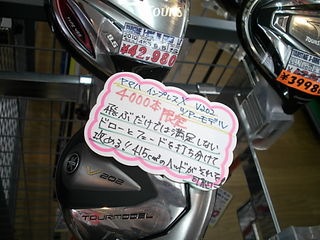 TOURS
¥42,980
¥39980
ヤマハ インプレスX V202
ツアーモデル
4000本限定
飛ぶだけでは満足しない
ドローとフェードを打ち分けて
攻める!415cm³のヘッドがそれを
可能に
V202
TOURMODEL